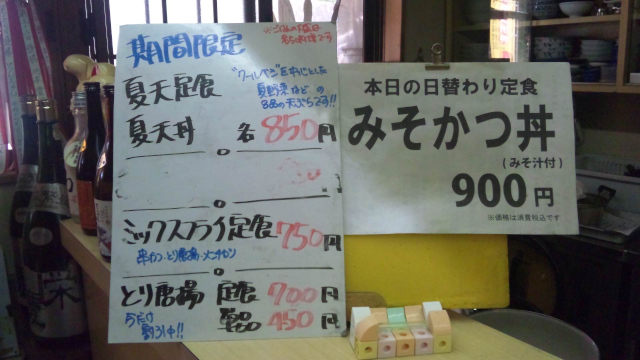 期間限定
夏天定食
"クールベジ"を中心とした
夏野菜など の
8品の天ぷらです!!
夏天丼 各 850円
ミックスフライ定食 750円
串カツ・とり唐揚・メンチカツ
とり唐揚 定食 700円
今だけ
割引中!! 単品 450円
本日の日替わり定食
みそかつ丼
(みそ汁付)
900円
※価格は消費税込です